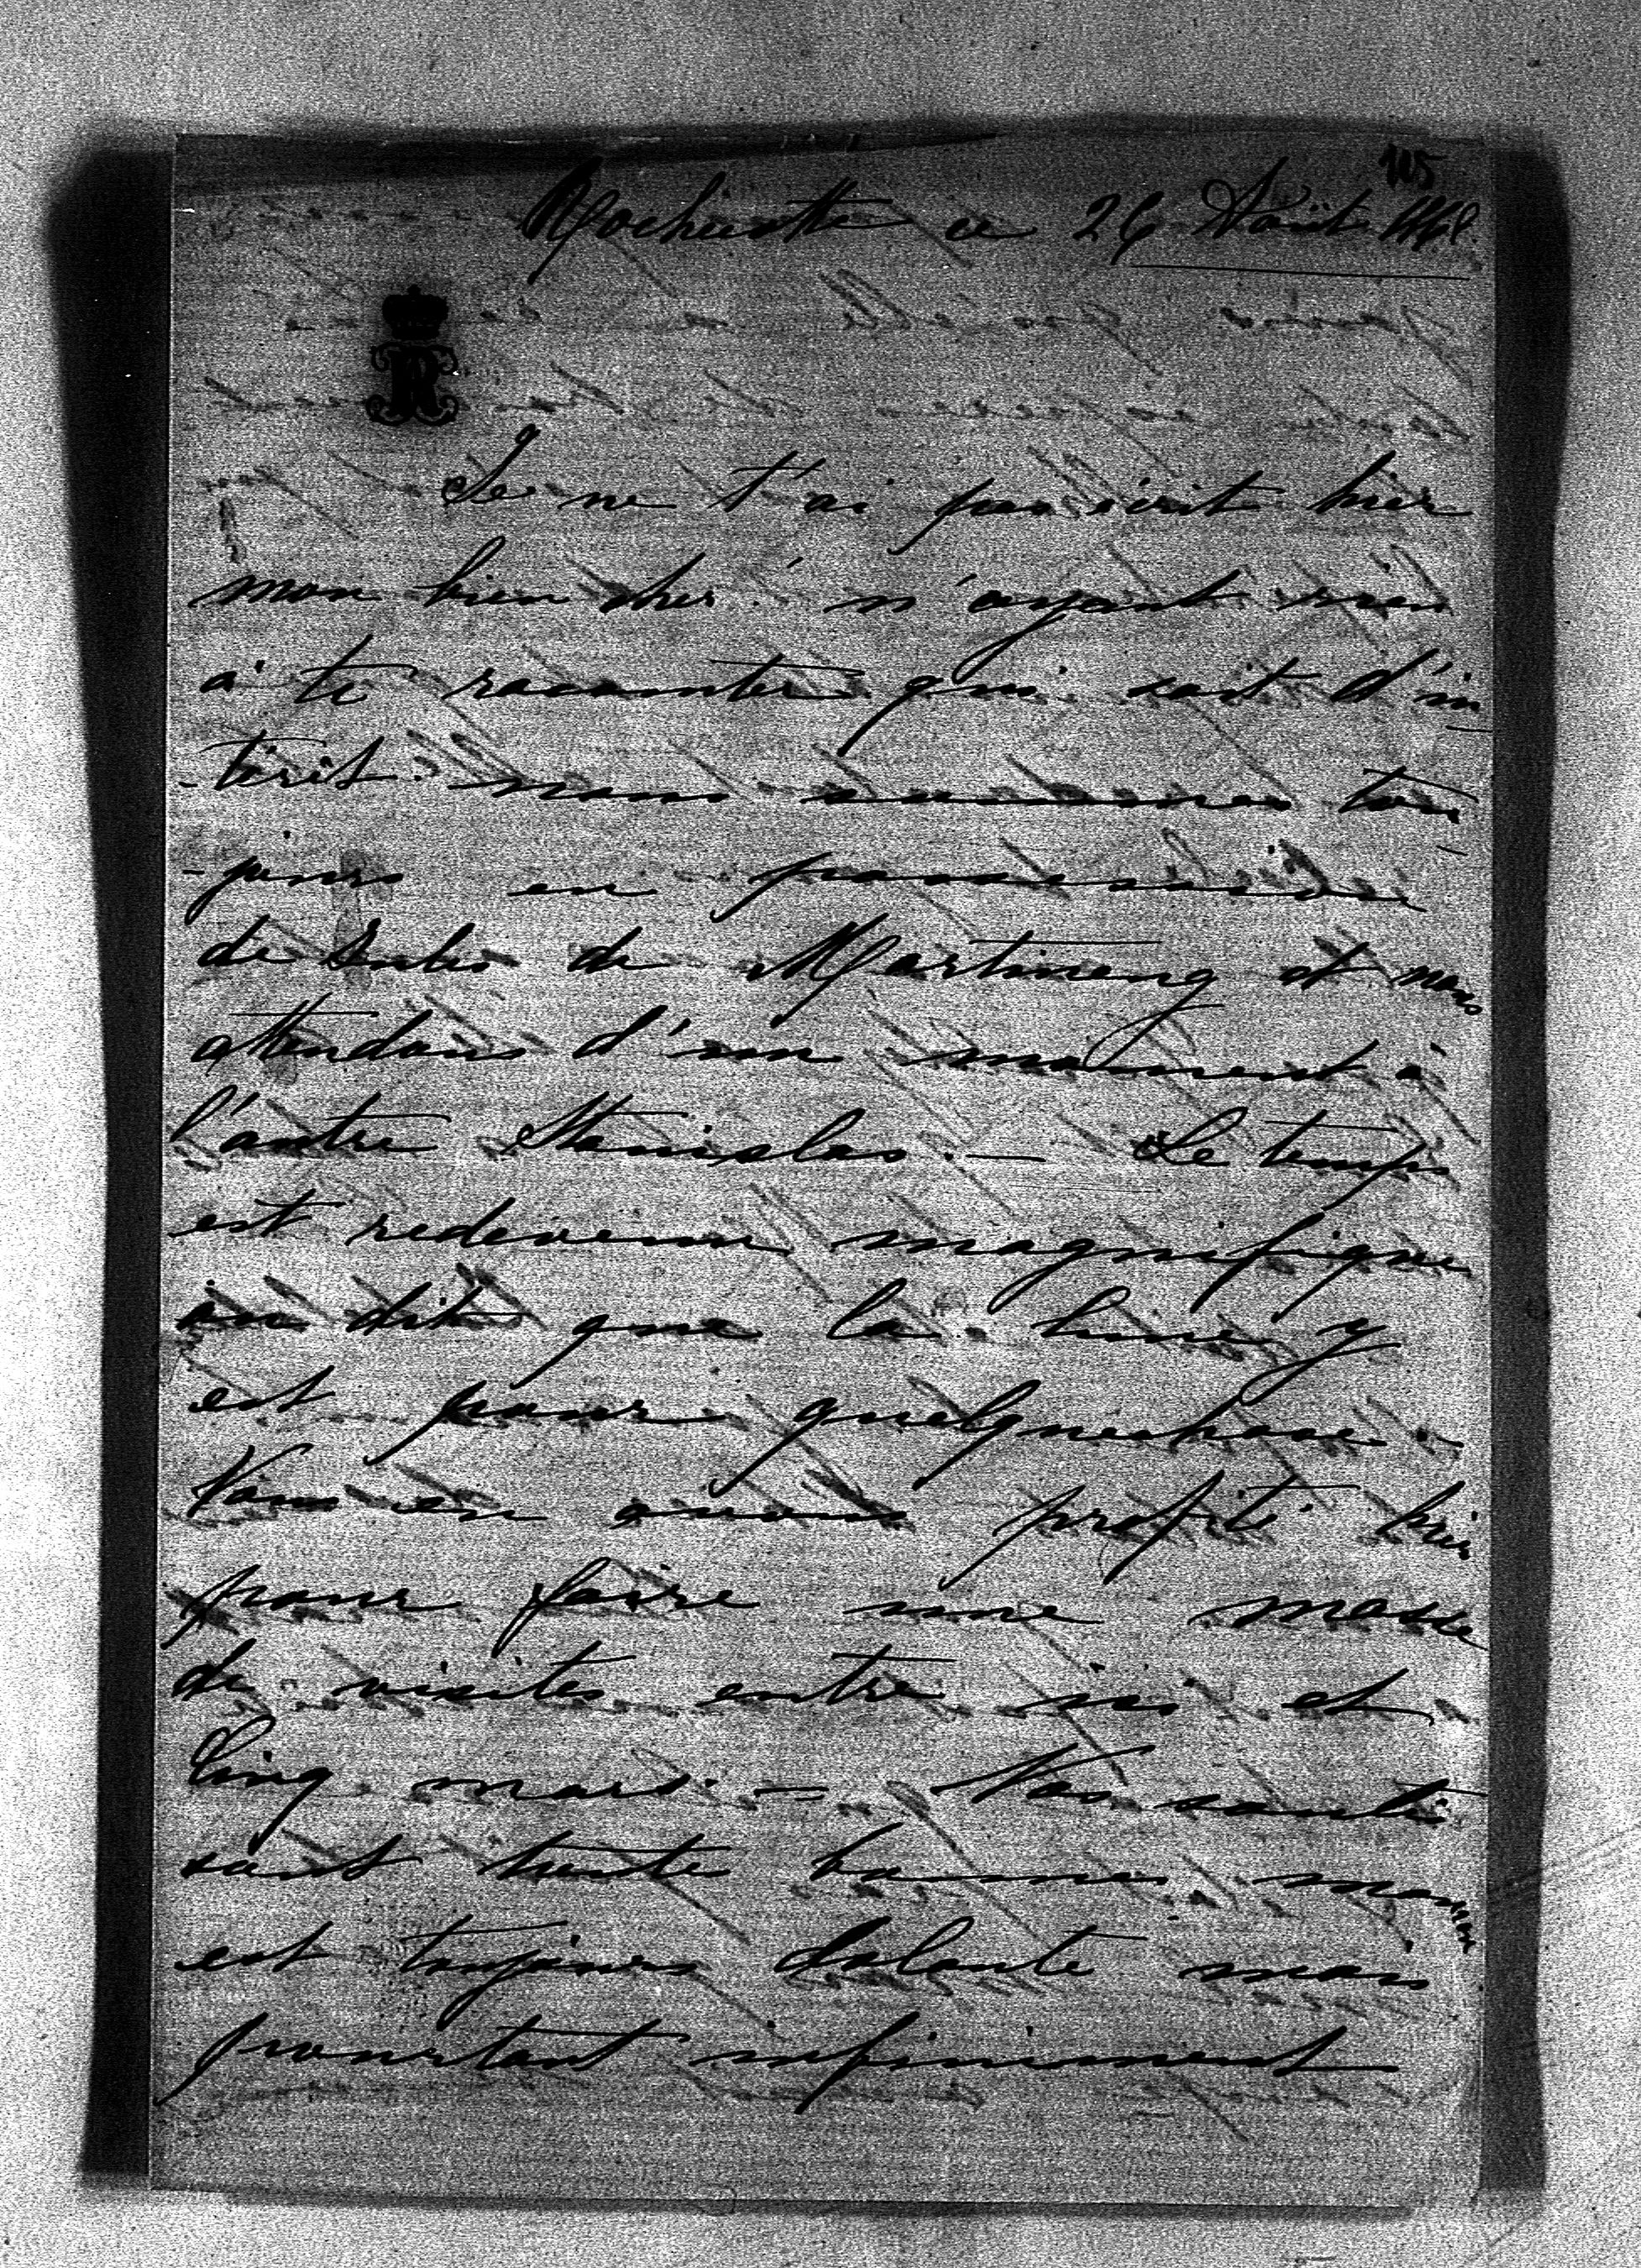 105
ce 26 Août
Je ne t'ai pas écrit hier
mon bien cher n'ayant rien
à te raconter qui soit d'in
-térêt. nous sommes tou
-jours en possession
de de Martineng et nous
attendons d'un moment à
l'autre Stanislas. — Le temps
est redevenu magnifique
on dit que la lune y
est pour quelquechose -
Nous en avons profité hier
pour faire une masse
de visites entre ici et
Cinq mars. — Nos santés
sont toutes bonnes
est toujours dolente mais
pourtant infiniment